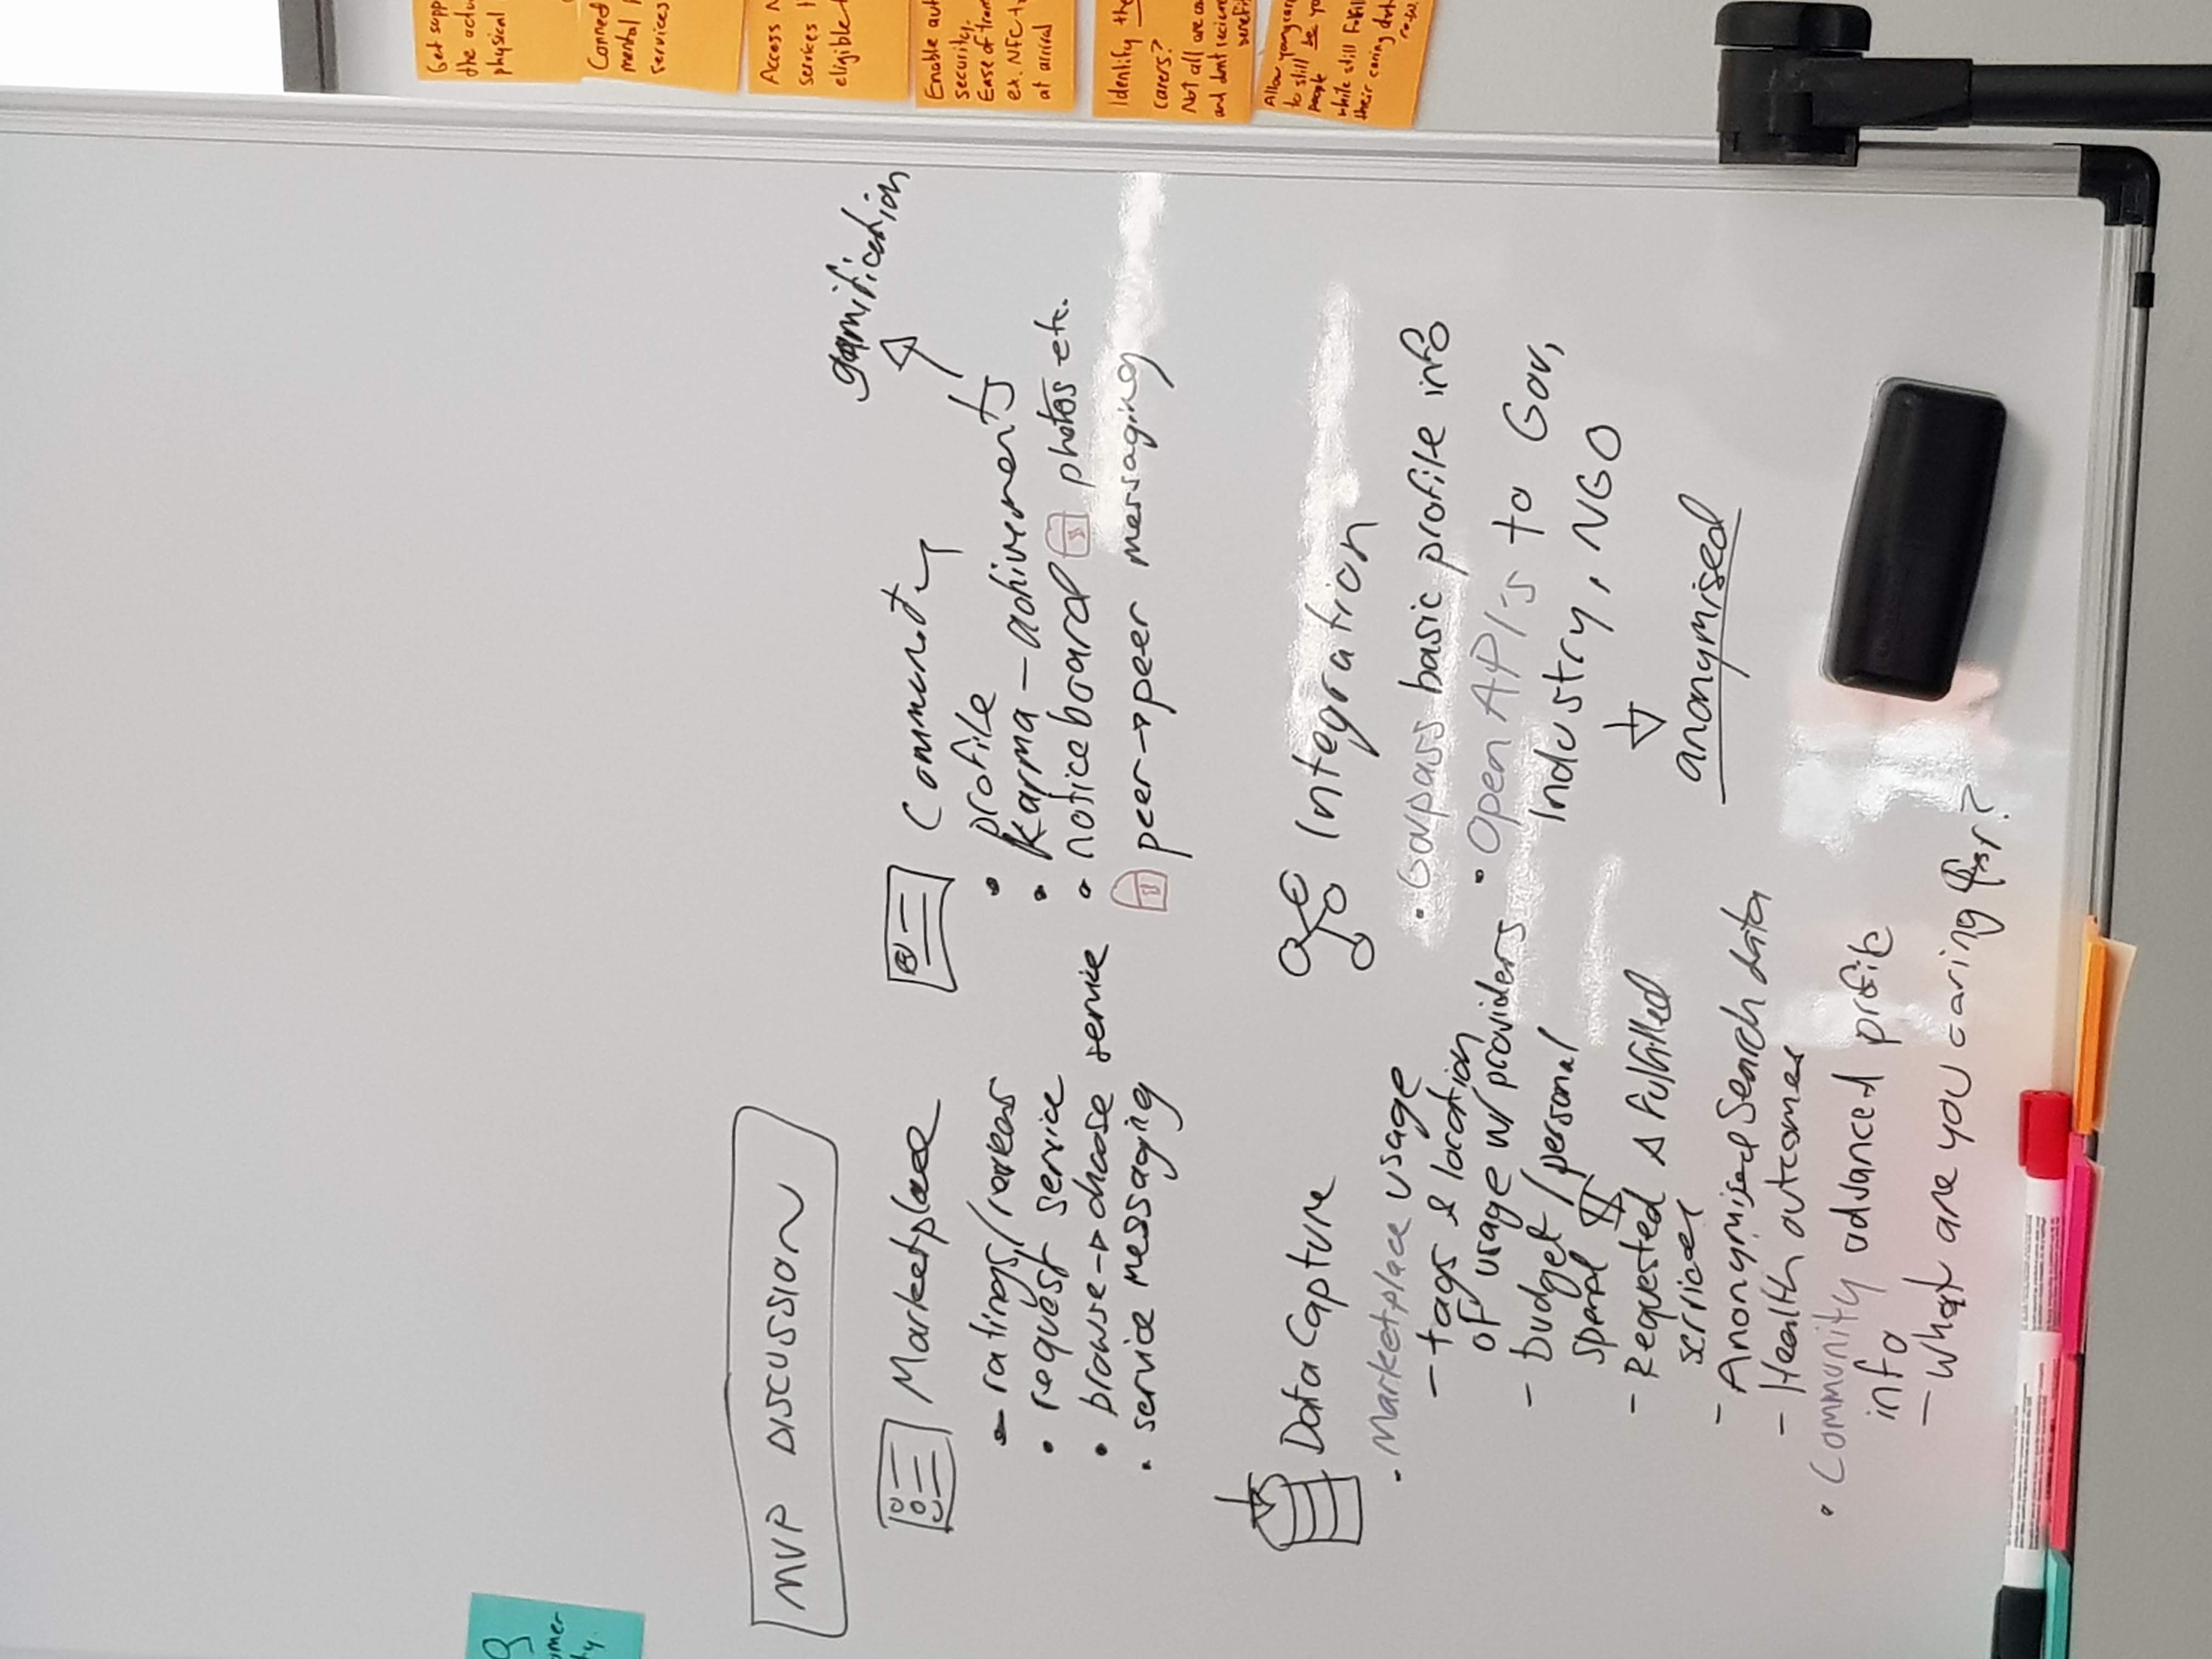 MVP DISCUSSION
Marketplace
- ratings/reviews
• request service
• browse → choose service
• service messaging
Community
• profile
• Karma - achivements
gamification
• noticeboard photos etc.
peer → peer messaging
Data Capture
• Marketplace usage
- tags & location
of usage w/ providers
- budget / personal
spend $
- Requested Δ fulfilled
services
- Anonymised Search data
- Health outcomes
• Community advanced profile
info
- What are you caring for?
Integration
• Govpass basic profile info
• Open API's to Gov,
Industry, NGO
anonymised
omer
ty.
Get supp
the actu
physical
Connect
mental
services
Access N
services t
eligible
Enable aut
security.
Ease of tran
ex. NFC t
at arrival
Identify the
carers?
Not all are
and dont recieve
benefi
Allow young car
to still be yo
people
while still fulfil
their caring dut